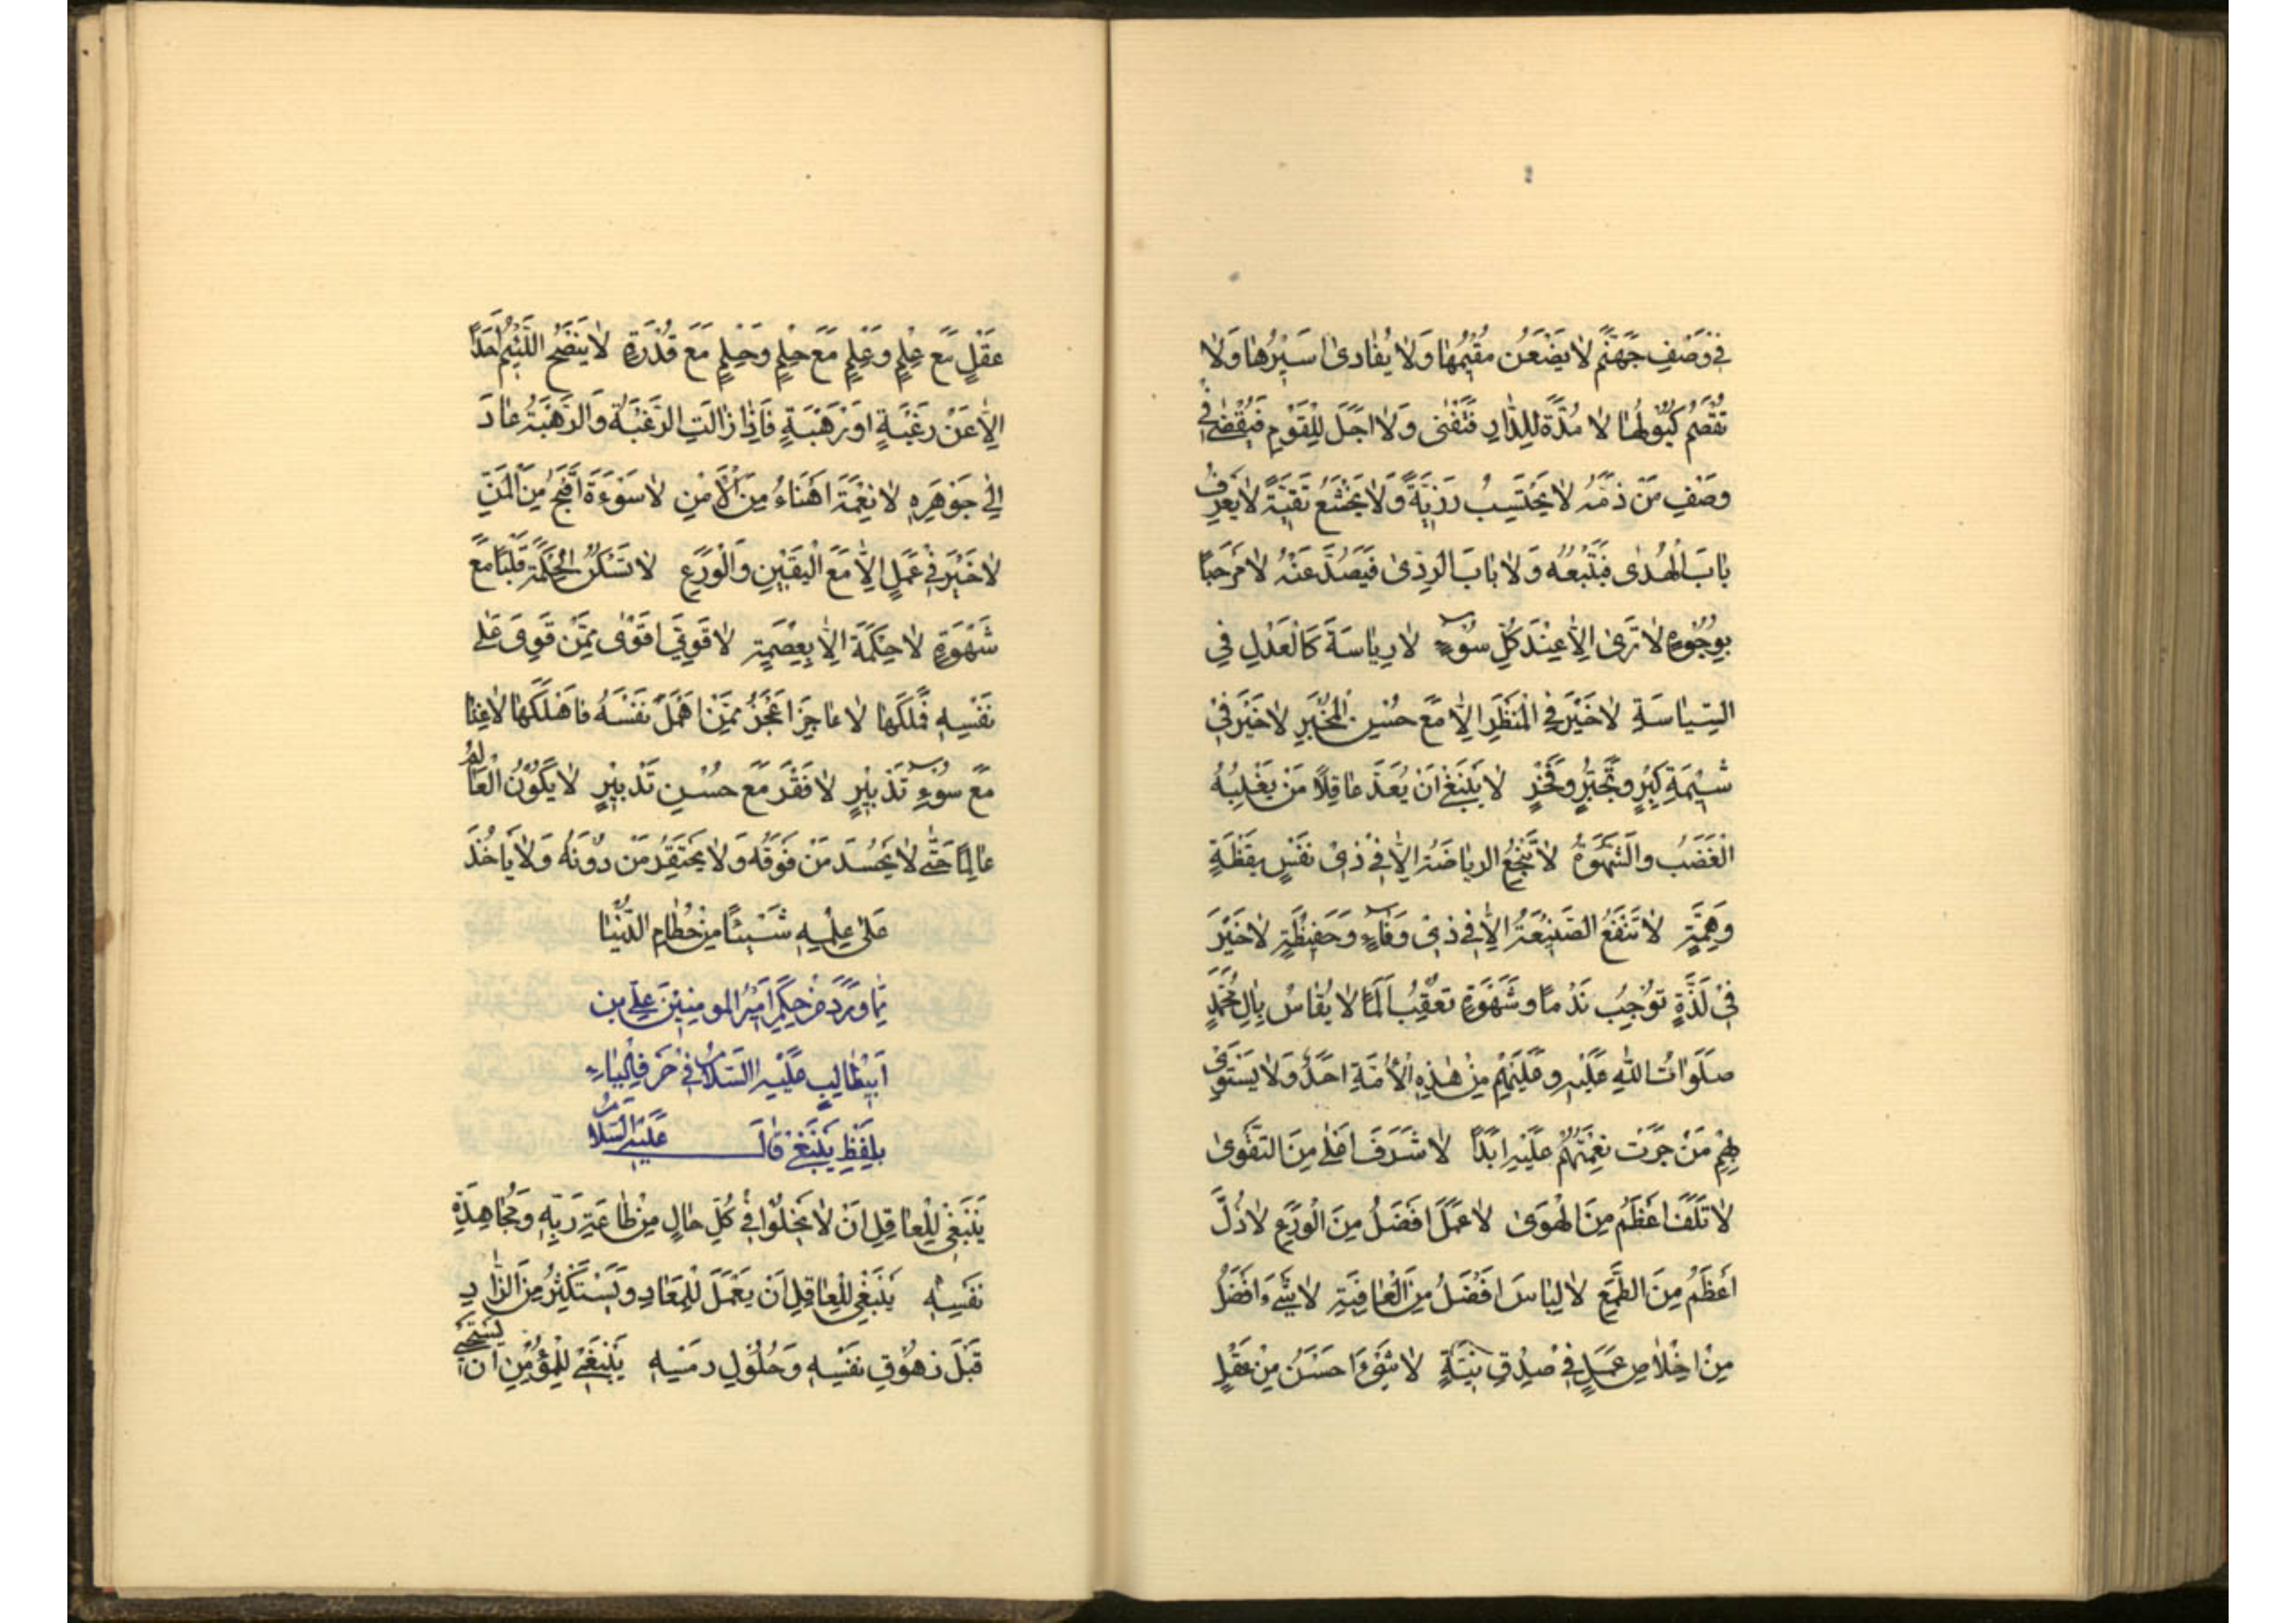 في وَصْفِ جَهَنَّمَ لا يَضْعَنُ مُقيمُها وَلا يُفادى اسَيرُها وَلا
تُقْصَمُ كُبُولُها لا مُدَّةَ لِلدّارِ فَتَفْنى وَلا اَجَلَ لِلْقَوْمِ فَيُقْضى في
وصَفِ مَنْ ذَمَّهُ لا يَحْتَسِبُ رَزِيَّةً وَلا يَخْشَعُ تَقِيَّةً لا يَعْرِفُ
بابَ الْهُدى فَيَتَّبِعُهُ وَلا بابَ الرَدى فَيَصُدَّ عَنْهُ لا مَرْحَبًا
بِوُجُوهٍ لا تَرى اِلّا عِنْدَ كُلِّ سُوءٍ لا رِياسَةَ كَالْعَدْلِ فِي
السِّياسَةِ لا خَيْرَ في الْمَنْظَرِ اِلّا مَعَ حُسْنِ الْمَخْبَرِ لا خَيْرَ في
شيمَةِ كِبْرٍ وتَجَبُّرٍ وفَخْرٍ لا يَنْبَغي اَنْ يُعَدَّ عاقِلًا مَنْ يَغْلِبُهُ
الْغَضَبُ والشَّهْوَةُ لا تَنْجَعُ الرياضَةُ اِلّا في ذي نَفْسٍ يقَظَةٍ
وَهِمَّةٍ لا تَنْفَعُ الصَّنيعَةُ اِلّا في ذي وَفاءٍ وَحَفيظَةٍ لا خَيْرَ
في لَذَّةٍ تُوجِبُ نَدْمًا وشَهْوَةٍ تُعْقِبُ اَلَمًا لا يُقاسُ بِالِ مُحَمَّدٍ
صَلَوَاتُ اللهِ عَلَيْهِ وعَلَيْهِمْ مِنْ هذِهِ الْاُمَّةِ اَحَدٌ وَلا يَسْتَوي
بِهِمْ مَنْ جَرَتْ نِعْمَتُهُمْ عَلَيْهِ اَبَدًا لا شَرَفَ اَعْلى مِنَ التَقْوى
لا تَلَفَ اعْظَمُ مِنَ الْهَوى لا عَمَلَ افْضَلُ مِنَ الْوَرَعِ لا ذُلَّ
اَعْظَمُ مِنَ الطَّمَعِ لا لِباسَ افْضَلُ مِنَ الْعافِيَةِ لا شَيْءَ اَفْضَلُ
مِنْ اِخْلاصِ عَمَلٍ في صِدْقِ نِيَّةٍ لا شَيْءَ احَسْنَ مِنْ عَقْلٍ
عَقْلٍ مَعَ عِلْمٍ وَعِلْمٍ مَعَ حِلْمٍ وحِلْمٍ مَعَ قُدْرَةٍ لا يَنْصَحُ اللَّئيمُ اَحَدًا
اِلّا عَنْ رَغْبَةٍ اوْ رَهْبَةٍ فَاِذا زالَتِ الرَغْبَةُ وَالرَهْبَةُ عادَ
اِلى جَوْهَرِهِ لا نِعْمَةَ اهْنَاءُ مِنَ الْاَمْنِ لا سَوْءَةَ اَقْبَحُ مِنَ الْمَنِّ
لا خَيْرَ في عَمَلٍ اِلّا مَعَ الْيَقينِ وَالْوَرَعِ لا تَسْكُنُ الْحِكْمَةُ قَلْبًا مَعَ
شَهْوَةٍ لا حِكْمَةَ اِلّا بِعِصْمَةٍ لا قَوِيَّ اقْوى مِمَّنْ قَوِيَ عَلى
نَفْسِهِ فَمَلَكَها لا عاجِزَ اعْجَزُ مِمَّنْ اهْمَلَ نَفْسَهُ فاهْلَكَها لا غِنا
مَعَ سُوءِ تَدْبيرٍ لا فَقْرَ مَعَ حُسْنِ تَدْبيرٍ لا يَكُونُ الْعالِمُ
عالِمًا حَتّى لا يَحْسُدَ مَنْ فَوْقَهُ وَلا يَحْتَقِرُ مَنْ دُونَهُ وَلا يَأخُذَ
عَلى عِلْمِهِ شَيْئًا مِنْ حُطامِ الدُّنْيا
مِمّا وَرَدَ مِنْ حِكَمِ اَميرِ المومِنينَ عَلِيِّ بن
اَبيطالِبٍ عَلَيْهِ السَّلامُ في حَرْفِ الْياءِ
بِلَفْظِ يَنْبَغي قالَ عَلَيْهِ السَّلامُ
يَنْبَغي لِلْعاقِلِ انْ لا يَخْلُوا في كُلِّ حالٍ مِنْ طاعَةِ رَبِّهِ وَمُجاهِدَةِ
نَفْسِهِ يَنْبَغي لِلْعاقِلِ اَنْ يَعْمَلَ لِلْمَعادِ وَيَسْتَكْثِرُ مِنَ الزّادِ
قَبْلَ زهُوقِ نَفْسِهِ وَحُلُولِ رمْسِهِ يَنْبَغي لِلْمُؤْمِنِ اَنْ يَسْتَحْيِيَ